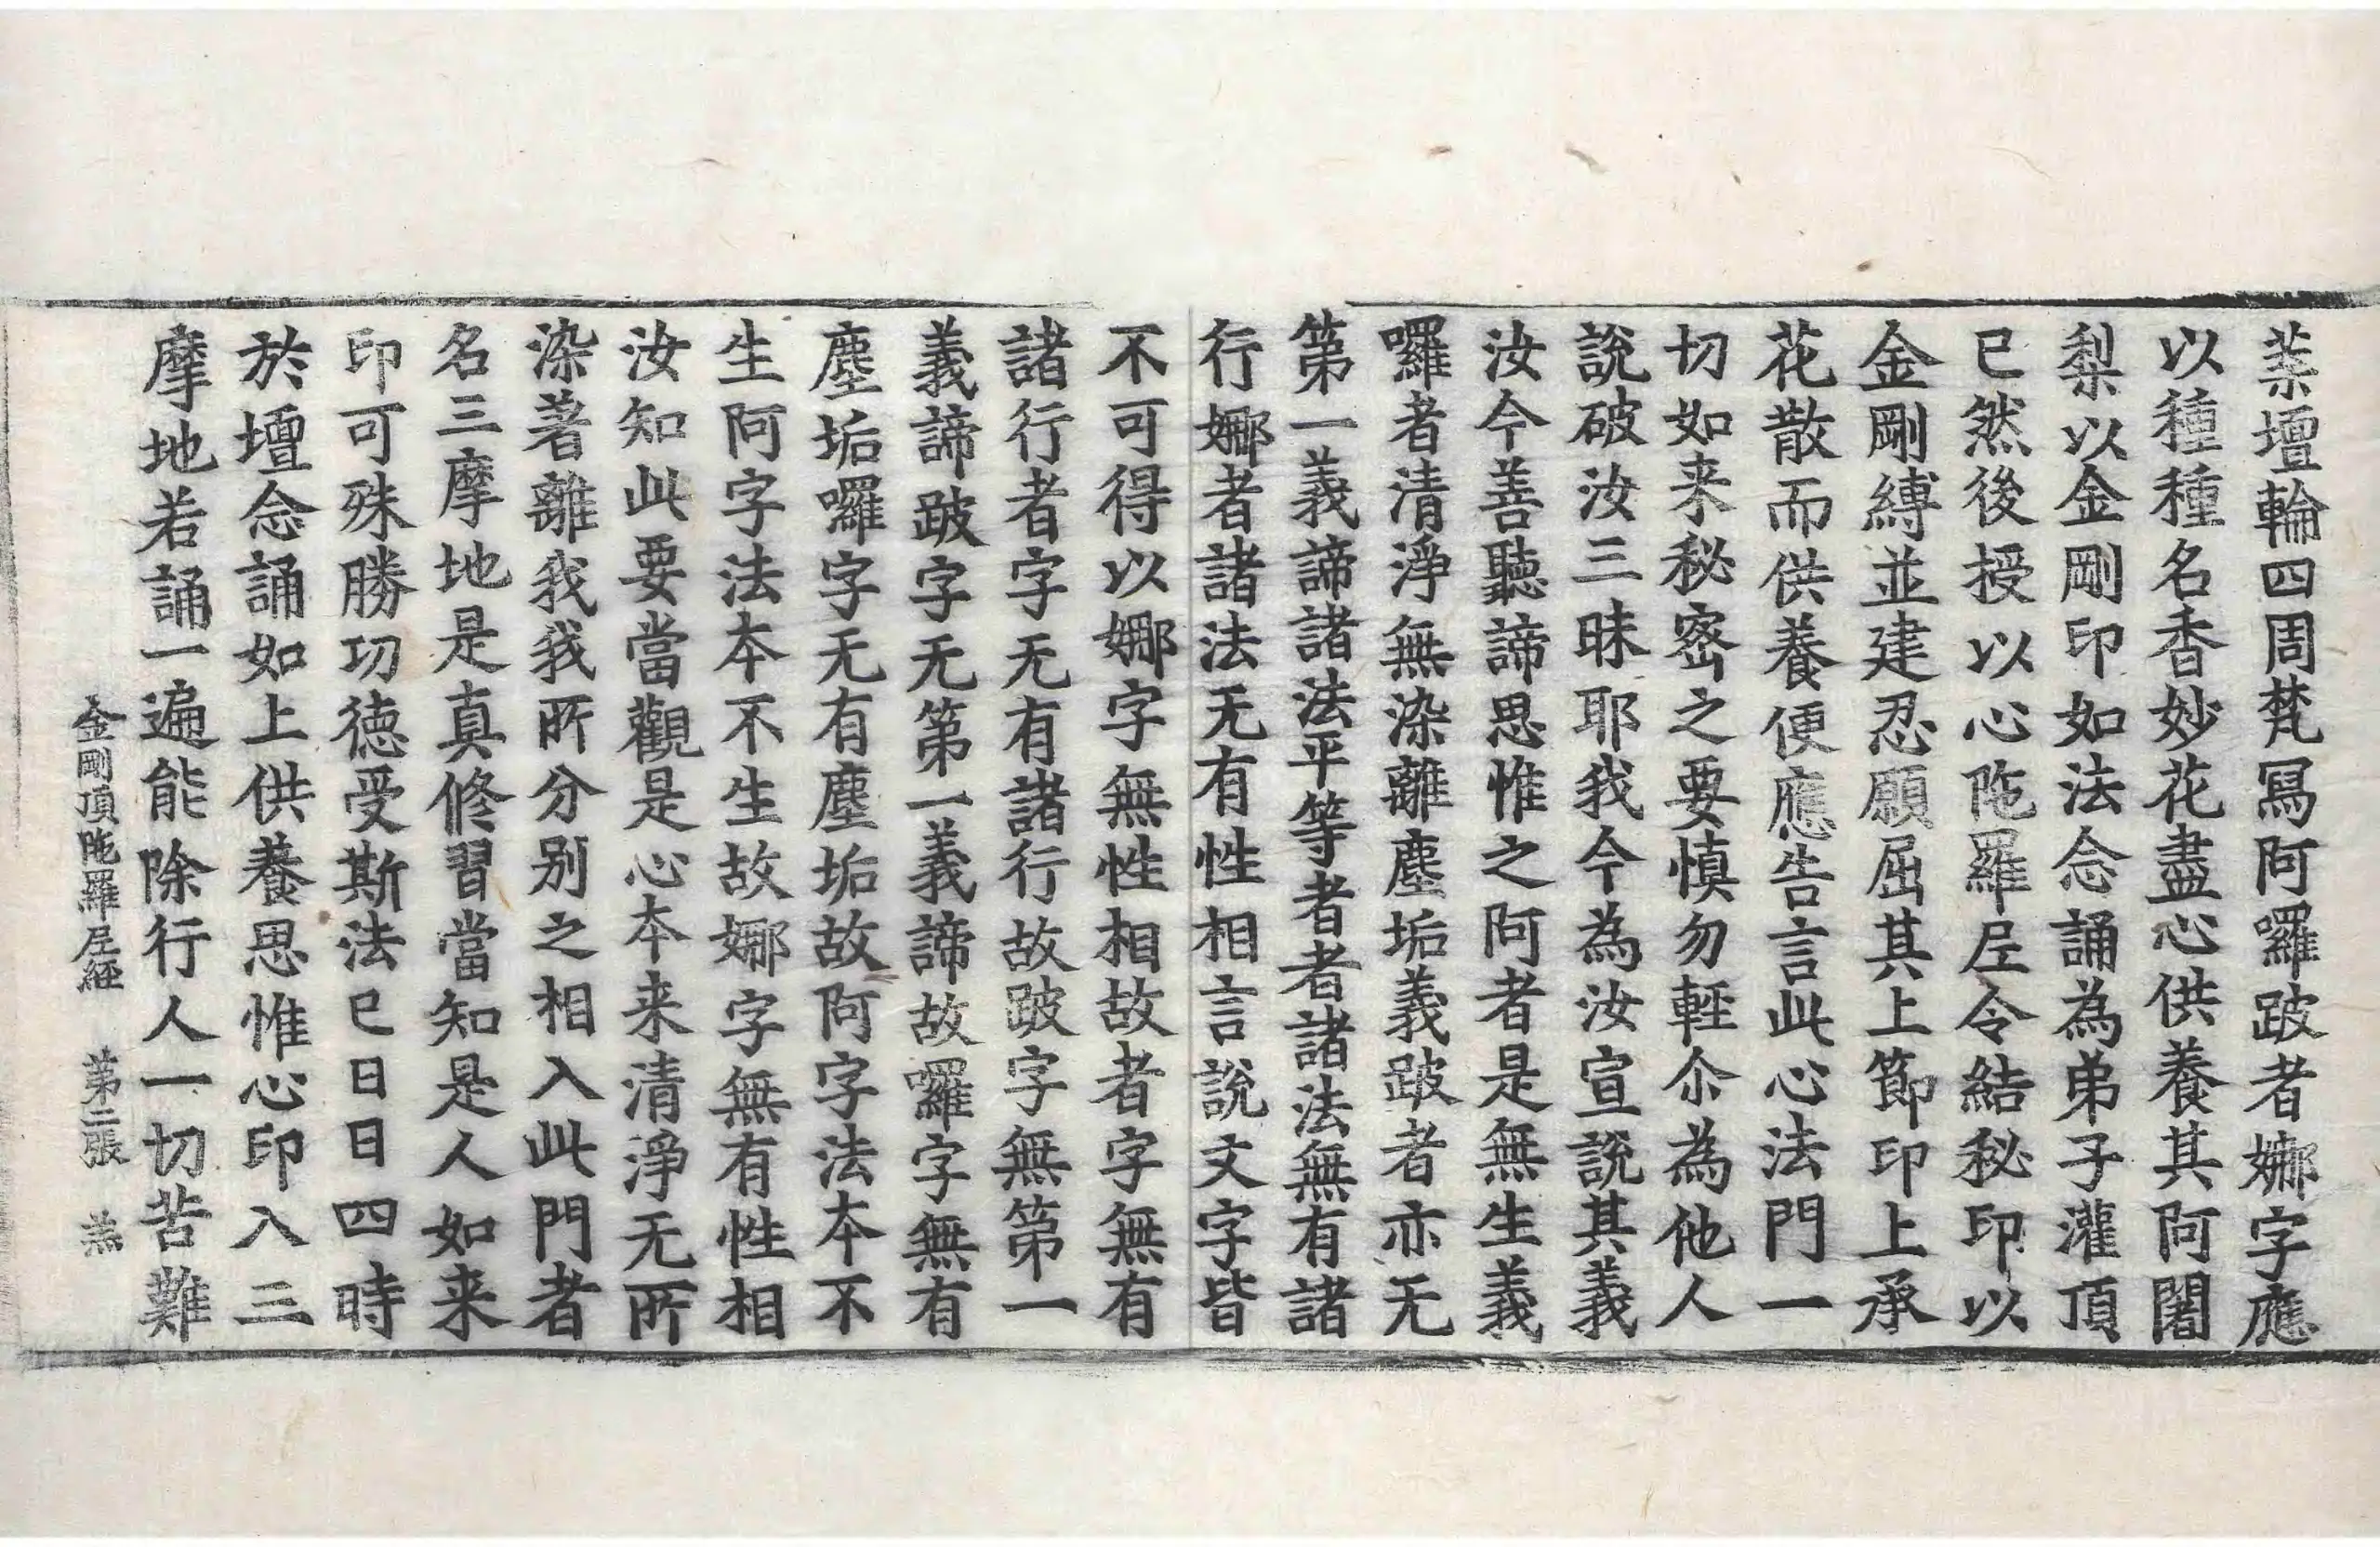 荼壇輪四周梵冩阿囉跛者娜字應
以種種名香妙花盡心供養其阿闍
梨以金剛印如法念誦為弟子灌頂
已然後授以心陁羅𡰱令結秘印以
金剛縛並建忍願屈其上節印上承
花散而供養便應告言此心法門一
切如来秘密之要慎勿輕尒為他人
說破汝三昧耶我今為汝宣說其義
汝今善聽諦思惟之阿者是無生義
囉者清淨無染離塵垢義跛者亦无
第一義諦諸法平等者者諸法無有諸
行娜者諸法无有性相言說文字皆
不可得以娜字無性相故者字無有
諸行者字无有諸行故跛字無第一
義諦跛字无第一義諦故囉字無有
塵垢囉字无有塵垢故阿字法本不
生阿字法本不生故娜字無有性相
汝知此要當觀是心本来清淨无所
染著離我我所分别之相入此門者
名三摩地是真修習當知是人如来
印可殊勝功徳受斯法已日日四時
於壇念誦如上供養思惟心印入三
摩地若誦一遍能除行人一切苦難
金剛頂陁羅𡰱經 第二張 羔